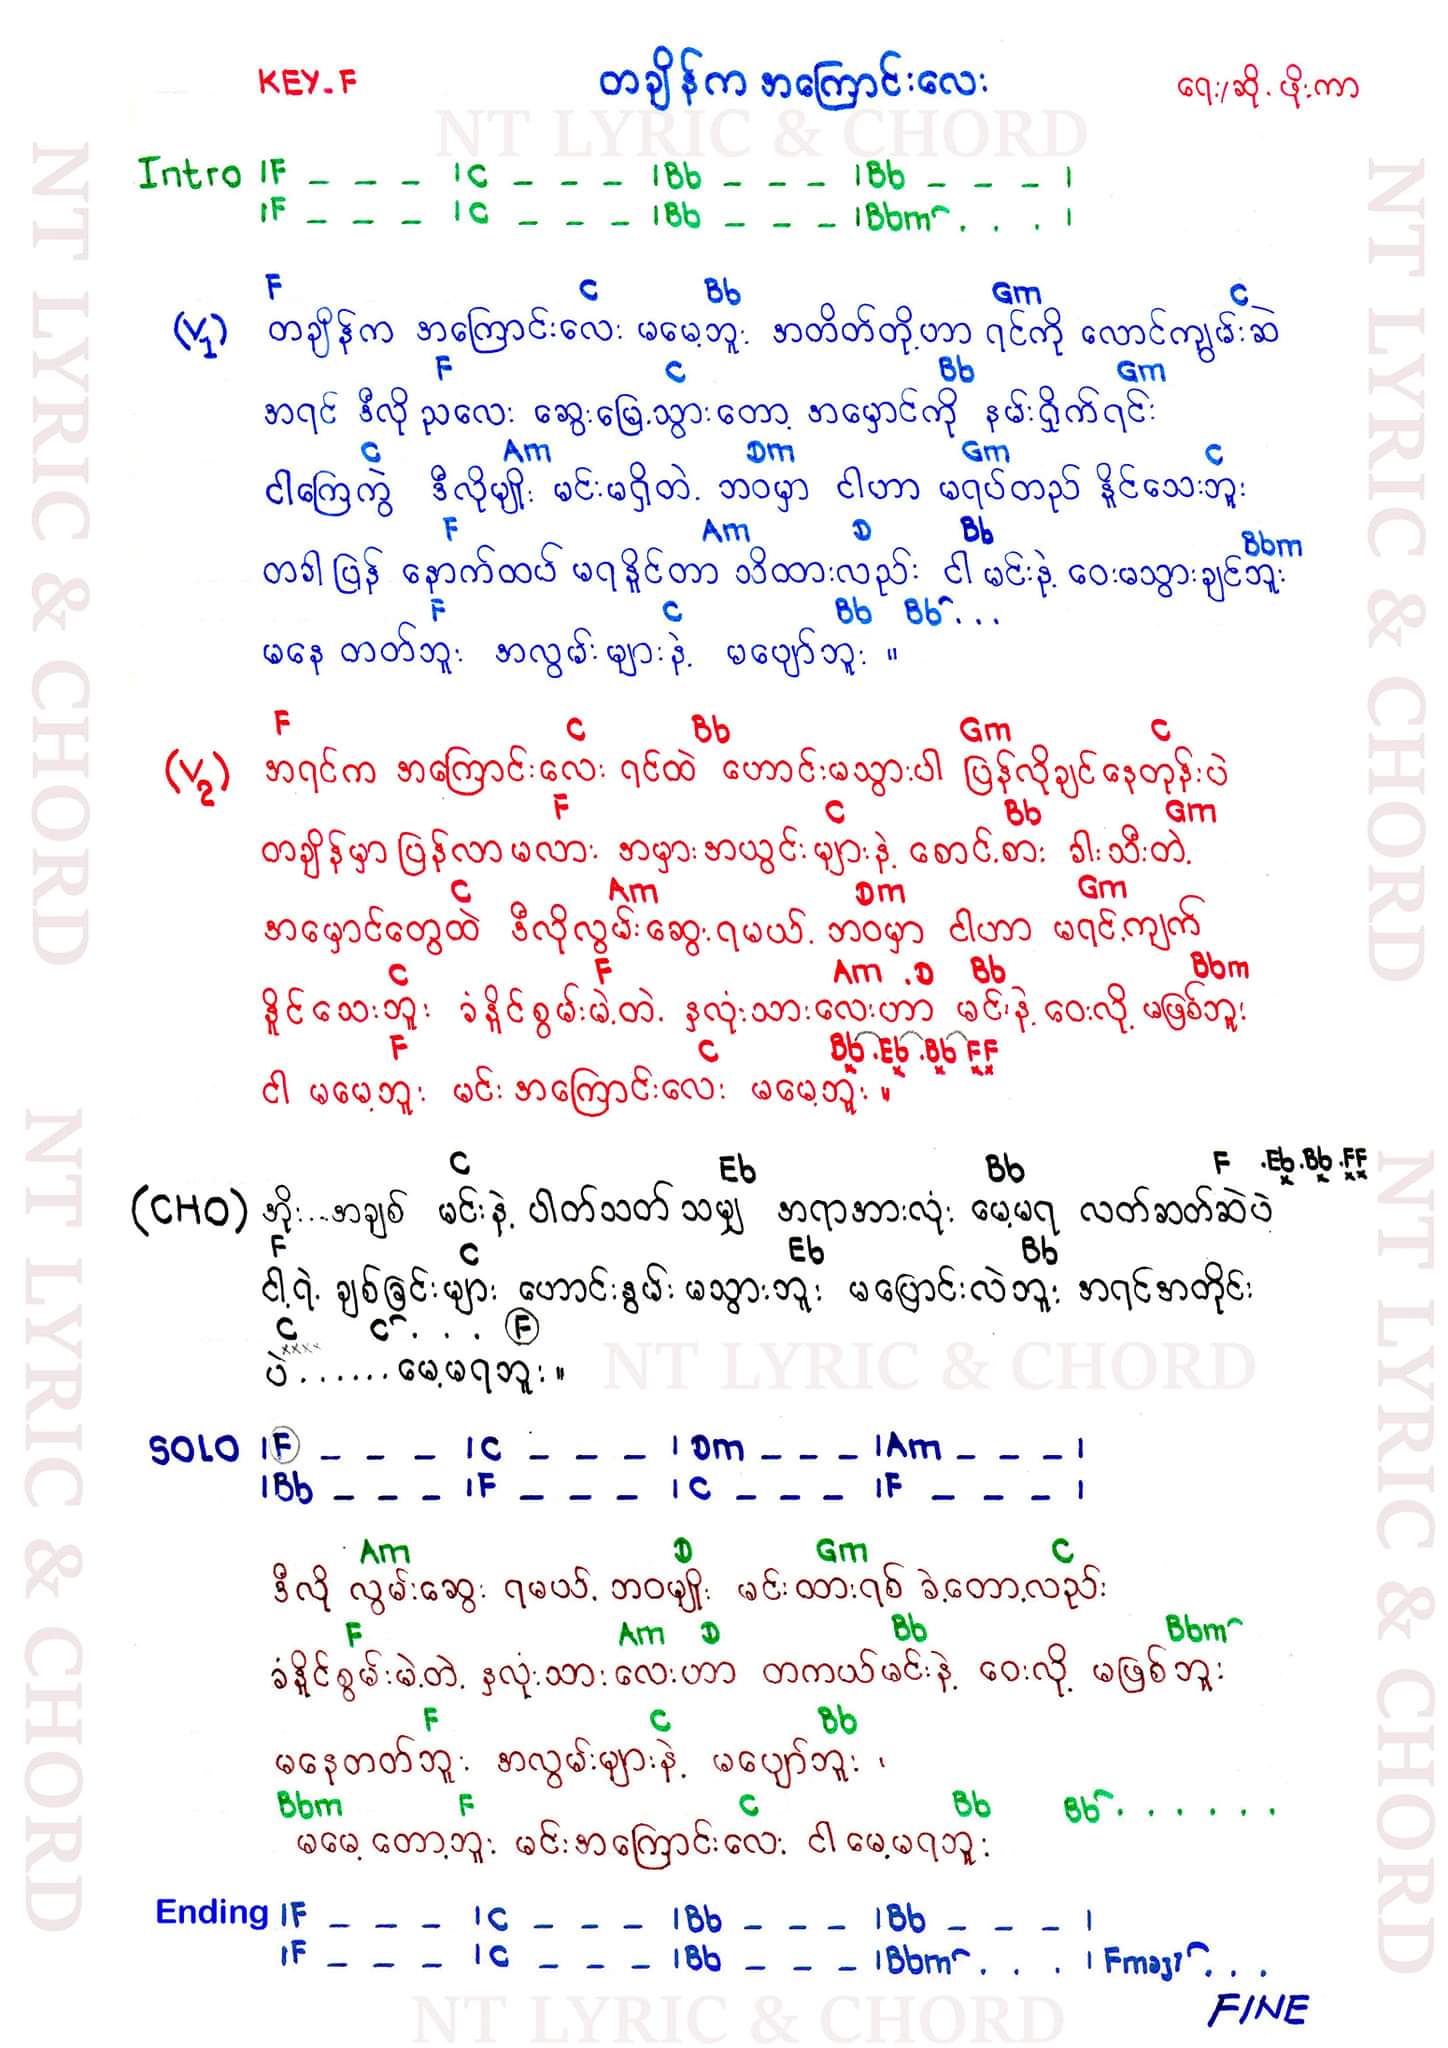 KEY-F တချိန်က အကြောင်းလေး ရေး/ဆို - ဖိုးကာ
NT LYRIC & CHORD
Intro |F _ _ _ |C _ _ _ |Bb _ _ _ |Bb _ _ _ |
|F _ _ _ |C _ _ _ |Bb _ _ _ |Bbm . . . |
F C Bb Gm C
(V1) တချိန်က အကြောင်းလေး မမေ့ဘူး အတိတ်တို့ဟာ ရင်ကို လောင်ကျွမ်းဆဲ
F C Bb Gm
အရင် ဒီလို ညလေး ဆွေးမြေ့သွားတော့ အမှောင်ကို နမ်းရှိုက်ရင်း
C Am Dm Gm C
ငါကြေကွဲ ဒီလိုမျိုး မင်းမရှိတဲ့ ဘဝမှာ ငါဟာ မရပ်တည် နိူင်သေးဘူး
F Am D Bb Bbm
တခါ ပြန် နောက်ထပ် မရနိူင်တာ သိထားလည်း ငါ မင်းနဲ့ ဝေးမသွားချင်ဘူး
F C Bb Bb ...
မနေ တတ်ဘူး အလွမ်းများနဲ့ မပျော်ဘူး ။
F C Bb Gm C
(V2) အရင်က အကြောင်းလေး ရင်ထဲ ဟောင်းမသွားပါ ပြန်လိုချင်နေတုန်းပဲ
F C Bb Gm
တချိန်မှာ ပြန်လာမလား အမှားအယွင်းများနဲ့ စောင့်စား ခါးသီးတဲ့
C Am Dm Gm
အမှောင်တွေထဲ ဒီလိုလွမ်းဆွေးရမယ့် ဘဝမှာ ငါဟာ မရင့်ကျက်
C F Am .D Bb Bbm
နိူင်သေးဘူး ခံနိူင်စွမ်းမဲ့တဲ့ နှလုံးသားလေးဟာ မင်းနဲ့ ဝေးလို့ မဖြစ်ဘူး
F C Bb .Eb .Bb FF
ငါ မမေ့ဘူး မင်းအကြောင်းလေး မမေ့ဘူး ။
C Eb Bb F .Eb .Bb .FF
(CHO) အိုး...အချစ် မင်းနဲ့ ပါတ်သတ်သမျှ အရာအားလုံး မေ့မရ လတ်ဆတ်ဆဲပဲ
F C Eb Bb
ငါ့ရဲ့ ချစ်ခြင်းများ ဟောင်းနွမ်းမသွားဘူး မပြောင်းလဲဘူး အရင်အတိုင်း
C C . . . F
ပဲ ...... မေ့မရဘူး ။
NT LYRIC & CHORD
SOLO |F _ _ _ |C _ _ _ |Dm _ _ _ |Am _ _ _ |
|Bb _ _ _ |F _ _ _ |C _ _ _ |F _ _ _ |
Am D Gm C
ဒီလို လွမ်းဆွေး ရမယ့် ဘဝမျိုး မင်းထားရစ် ခဲ့တော့လည်း
F Am D Bb Bbm
ခံနိူင်စွမ်းမဲ့တဲ့ နှလုံးသားလေးဟာ တကယ်မင်းနဲ့ ဝေးလို့ မဖြစ်ဘူး
F C Bb
မနေတတ်ဘူး အလွမ်းများနဲ့ မပျော်ဘူး ၊
Bbm F C Bb Bb ......
မမေ့ တော့ဘူး မင်းအကြောင်းလေး ငါ မေ့မရဘူး
Ending |F _ _ _ |C _ _ _ |Bb _ _ _ |Bb _ _ _ |
|F _ _ _ |C _ _ _ |Bb _ _ _ |Bbm . . . | Fmaj7 . . .
FINE
NT LYRIC & CHORD
NT LYRIC & CHORD
NT LYRIC & CHORD
NT LYRIC & CHORD
NT LYRIC & CHORD